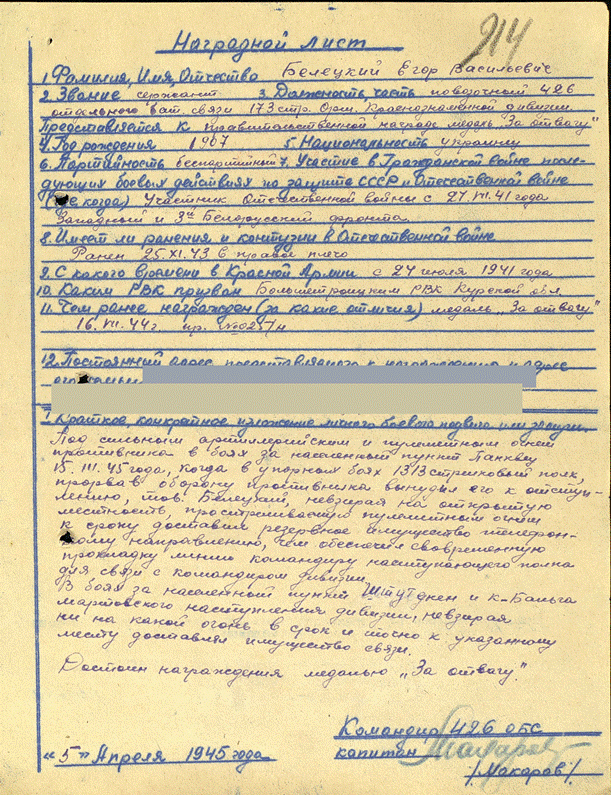 214
Наградной лист
1. Фамилия, Имя, Отчество Белецкий Егор Васильевич
2. Звание сержант 3. Должность часть повозочный 426
отдельного бат. связи 173 стр. Орш. Краснознаменной дивизии.
Представляется к правительственной награде медаль „За отвагу"
4. Год рождения 1907 5. Национальность украинец
6. Партийность беспартийный 7. Участие в Гражданской войне после-
дующих боевых действиях по защите СССР и Отечественной войне
(где когда) Участник Отечественной войны с 27.VII.41 года
Западный и 3й Белорусский фронта.
8. Имеет ли ранения и контузии в Отечественной войне
Ранен 25.XI.43 в правое плечо
9. С какого времени в Красной Армии с 24 июля 1941 года
10. Каким РВК призван Большетроицким РВК Курской обл.
11. Чем ранее награжден (за какие отличия) медаль „За отвагу"
16.VII.44г. пр. №0257/н
12. Постоянный адрес представляемого к награждению и адрес
его семьи
1. Краткое, конкретное изложение личного боевого подвига или заслуги.
Под сильным артиллерийским и пулеметным огнем
противника в боях за населенный пункт
15.III.45 года, когда в упорных боях 1313 стрелковый полк,
прорвав оборону противника вынудил его к отступ-
лению, тов. Белецкий, невзирая на открытую
местность, простреливаемую пулеметным огнем
к сроку доставил резервное имущество телефон-
ному направлению, чем обеспечил своевременную
прокладку линии командиру наступающего полка
для связи с командиром дивизии.
В боях за населенный пункт Штутднен и к-Бальга
мартовского наступления дивизии, невзирая
ни на какой огонь в срок и точно к указанному
месту доставлял имущество связи.
Достоин награждения медалью „За отвагу".
Командир 426 ОБС
капитан
/Макаров/.
„5" Апреля 1945 года